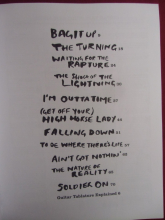 BAG IT UP 6
THE TURNING
WAITING FOR THE
RAPTURE
THE SHOCK OF THE
LIGHTNING
I'M OUTTA TIME
(GET OFF YOUR)
HIGH HORSE LADY
FALLING DOWN
TO BE WHERE THERE'S LIFE
AIN'T GOT NOTHIN'
THE NATURE OF
REALITY
SOLDIER ON
Guitar Tablature Explained